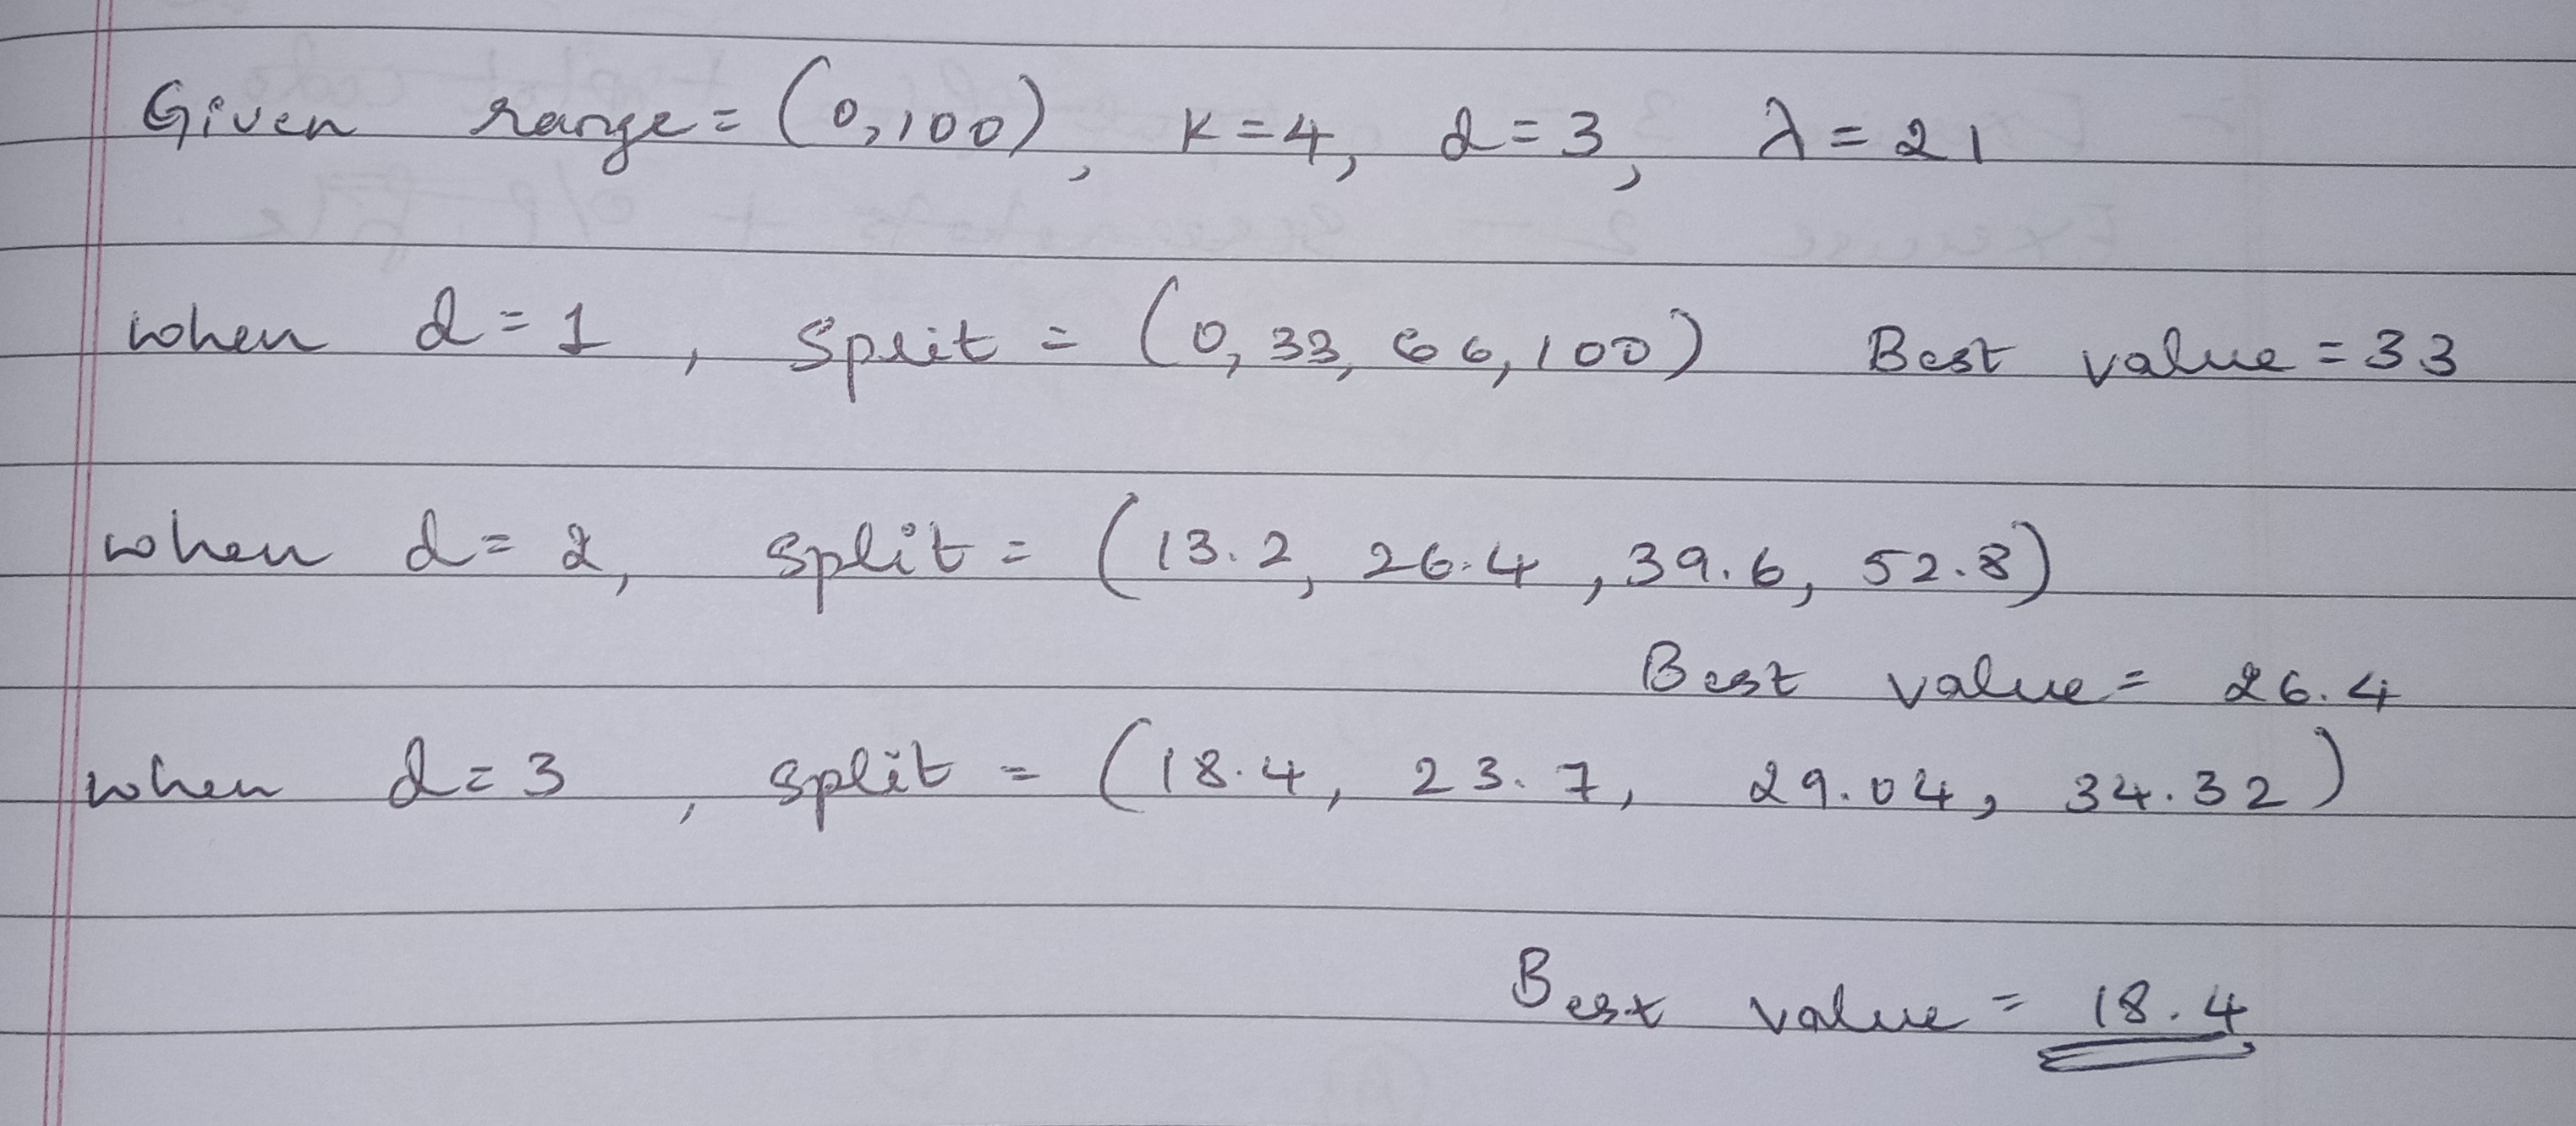 Given range = (0,100), K=4, d=3, λ=21
when d=1, split = (0, 33, 66, 100) Best value = 33
when d=2, split = (13.2, 26.4, 39.6, 52.8)
Best value = 26.4
when d=3, split = (18.4, 23.7, 29.04, 34.32)
Best value = 18.4